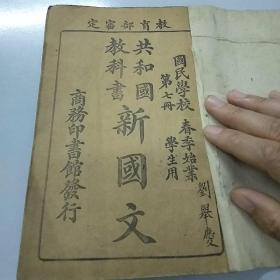 教育部審定
國民學校 春季始業
第七冊 學生用
共和國
教科書
新國文
商務印書館發行
劉
慶